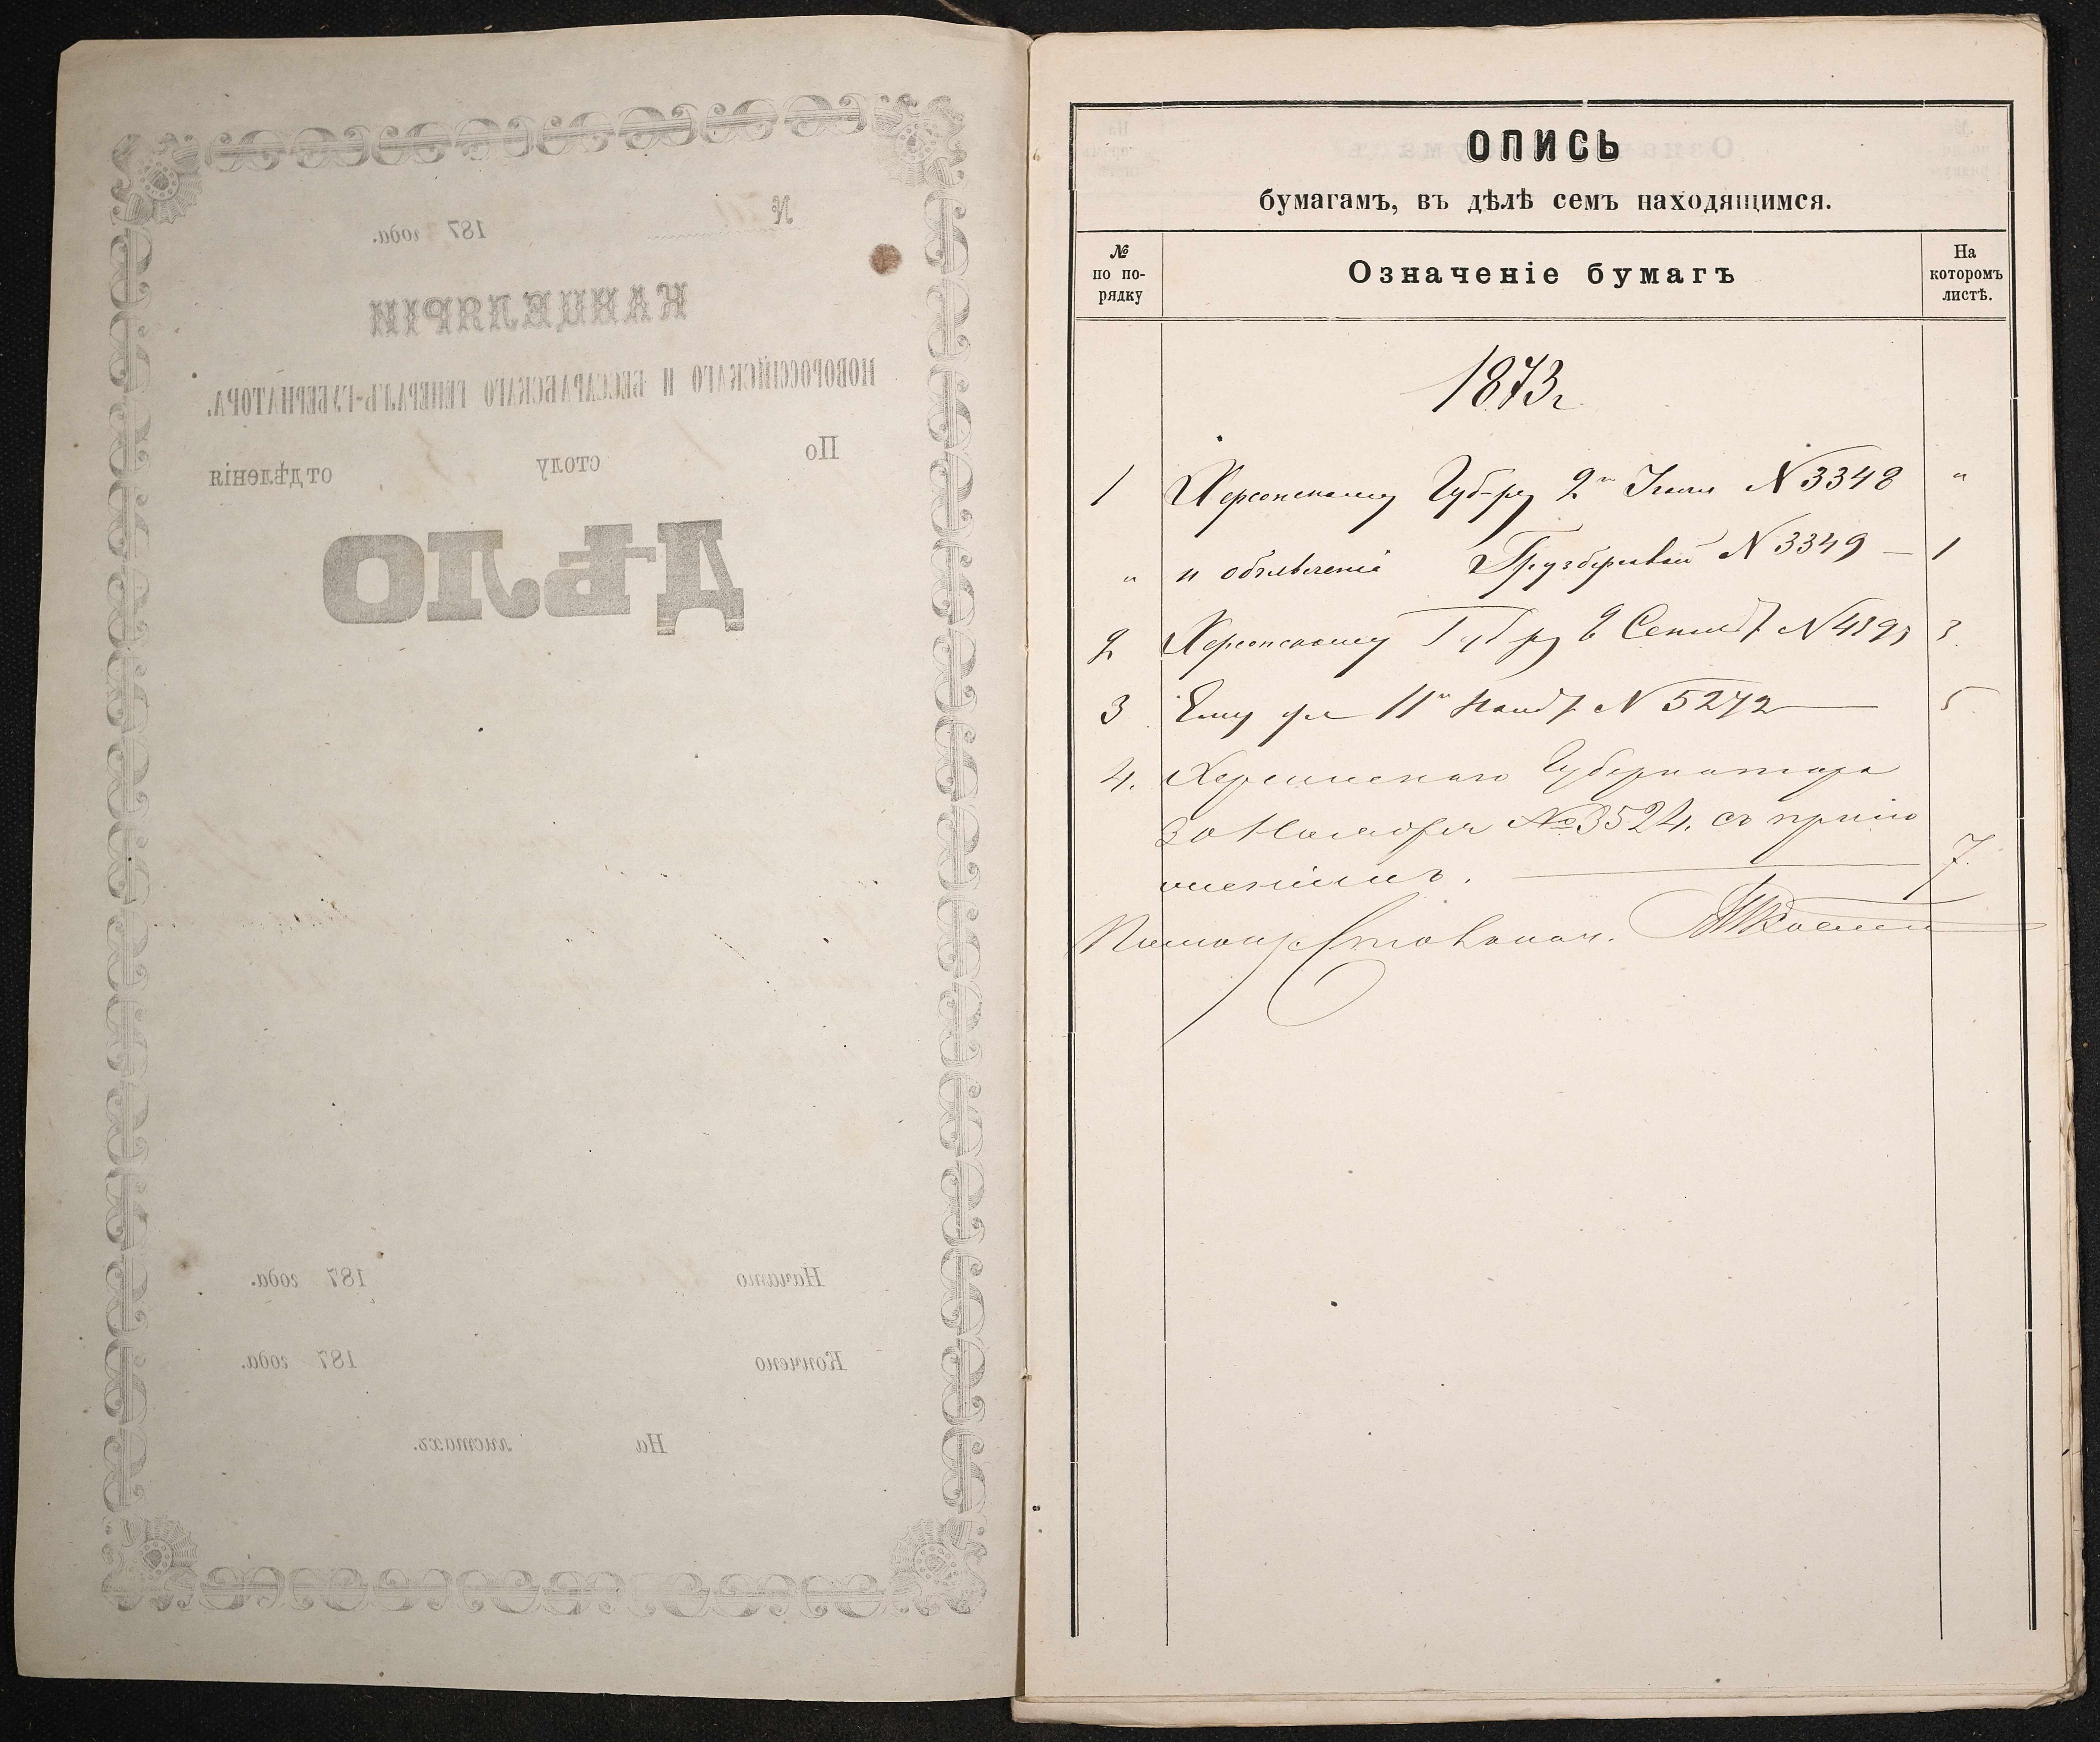 № 187 года.
КАНЦЕЛЯРІИ
НОВОРОССІЙСКАГО И БЕССАРАБСКАГО ГЕНЕРАЛЪ-ГУБЕРНАТОРА.
По столу отдѣленія
ДѢЛО
Начато 187 года.
Кончено 187 года.
На листахъ.
ОПИСЬ
бумагамъ, въ дѣлѣ семъ находящимся.
№ по по-рядку
Означеніе бумагъ
На которомъ листѣ.
1873 г
1 Херсонскому Губ-ру 2 N 3348 "
" и объявленіе N 3349 — 1
2 Херсонскому Губ-ру Сентяб N 3
3 Ему же 11 Нояб N 5272 5
4. Херсонскаго Губернатора
30 Ноября № 3524, съ прило
женіемъ. 7.
Помощ. Столонач.